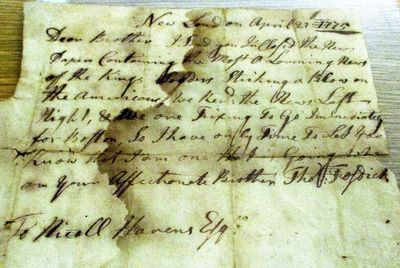 New Lond on April 22th 1775
Dear Brother I Send you Inclosd the News
Papers Containing the Most Alarming News
of the Kings Striking a Blow on
the Americans, we hed the News Last
Night, & one Fixing To Go Immediately
for Boston So I have on ly Time To Let You
know that I am one Going
Your Affectionate Brother Thos. Fosdick
To Nicoll Havens Esqr